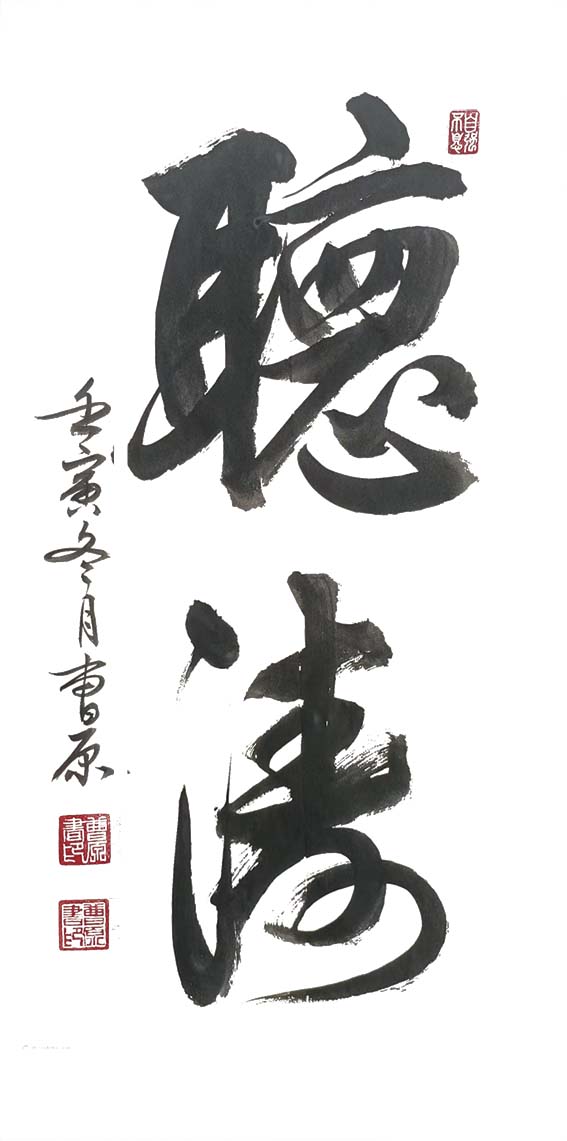 聽濤
自強不息
壬寅冬月曹原
曹原書印
曹原書印